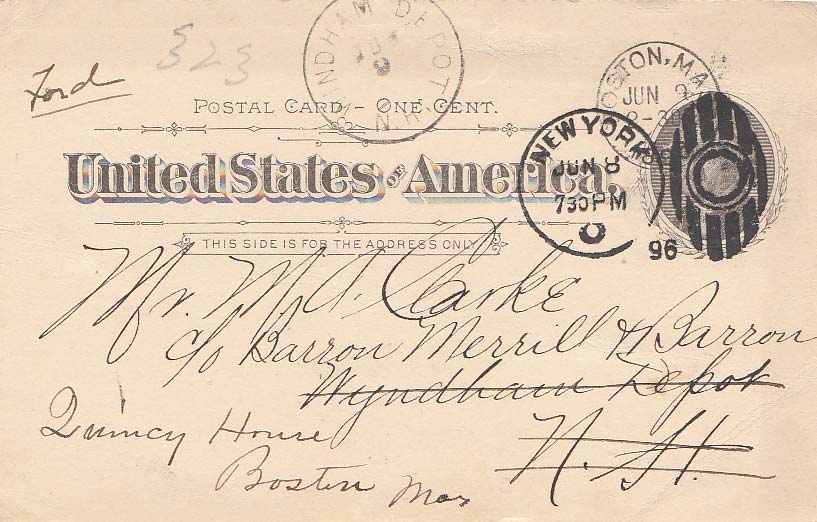 WINDHAM DEPOT
9
N.H.
323
Ford
BOSTON, MA
JUN 9
POSTAL CARD - ONE CENT.
NEW YORK
JUN 8
730 PM
96
United States of America.
THIS SIDE IS FOR THE ADDRESS ONLY
Mr. M. A. Clarke
c/o Barron Merrill & Barron
Wyndham Depot
N. H.
Quincy House
Boston Mas